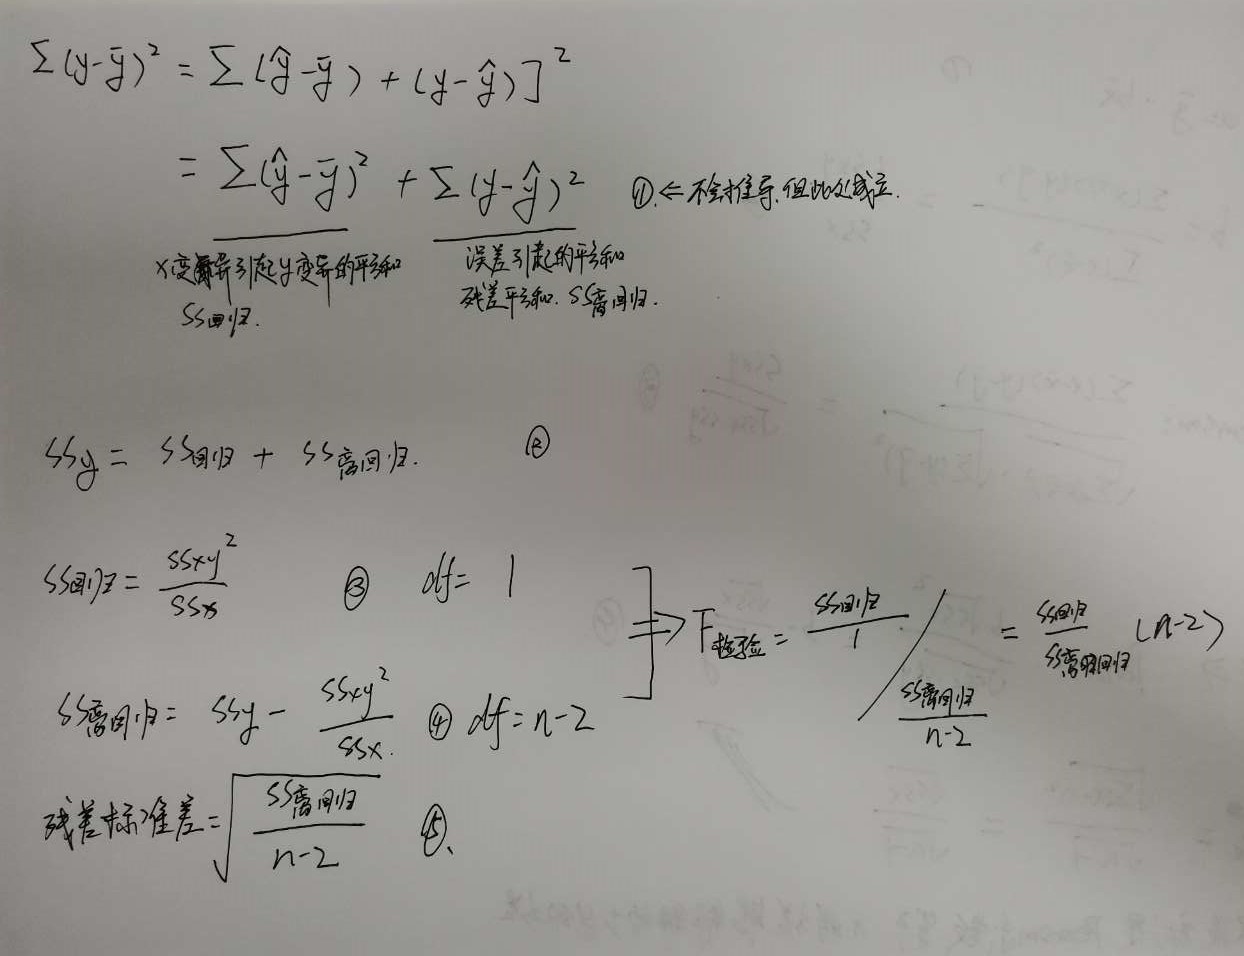 Σ(y-ȳ)² = Σ(ŷ-ȳ) + (y-ŷ)]²
= Σ(ŷ-ȳ)² + Σ(y-ŷ)² ①. ← 不会推导,但此处成立.
x变异引起y变异的平方和
SS回归.
误差引起的平方和
残差平方和. SS离回归.
SSy = SS回归 + SS离回归. ②
SS回归 = SSxy²/SSx ③ df = 1
SS离回归 = SSy - SSxy²/SSx. ④ df = n-2
⇒ F检验 = SS回归/1 / SS离回归/n-2 = SS回归/SS离回归 (n-2)
残差标准差 = √SS离回归/n-2 ⑤、